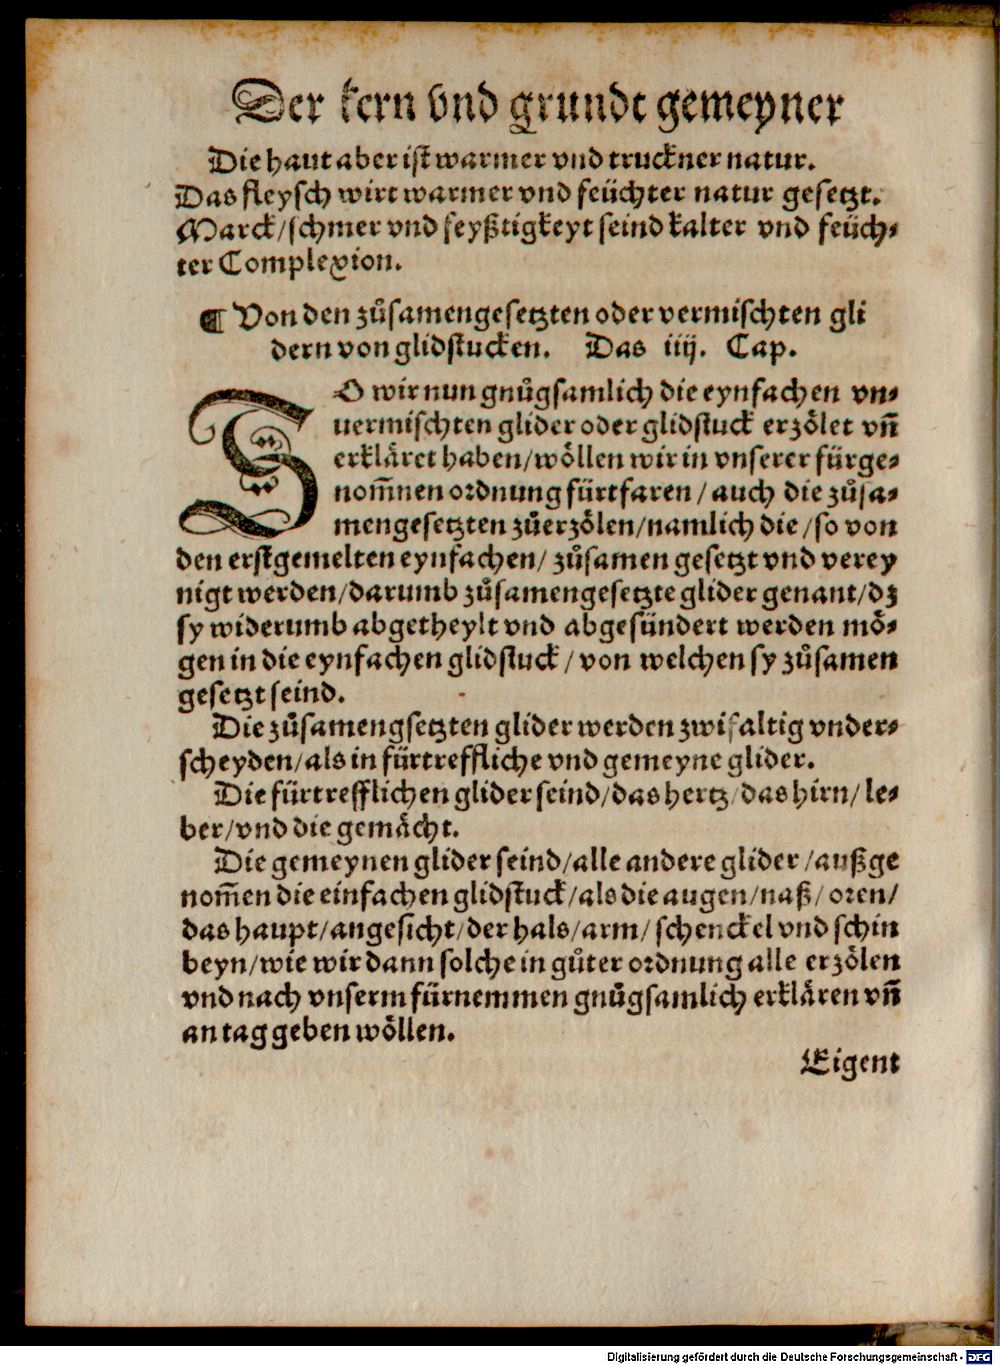 Der kern vnd grundt gemeyner
Die haut aber ist warmer vnd truckner natur.
Das fleysch wirt warmer vnd feüchter natur gesetzt.
Marck/schmer vnd feyßtigkeyt seind kalter vnd feüch-
ter Complexion.
¶ Von den zůsamengesetzten oder vermischten gli
dern von glidstucken. Das iiij. Cap.
SO wir nun gnůgsamlich die eynfachen vn-
uermischten glider oder glidstuck erzölet vñ
erkläret haben/wöllen wir in vnserer fürge-
nom̃nen ordnung fürtfaren/auch die zůsa-
mengesetzten zůerzölen/namlich die/so von
den erstgemelten eynfachen/zůsamen gesetzt vnd verey
nigt werden/darumb zůsamengesetzte glider genant/dz
sy widerumb abgetheylt vnd abgesündert werden mö-
gen in die eynfachen glidstuck/von welchen sy zůsamen
gesetzt seind.
Die zůsamengsetzten glider werden zwifaltig vnder-
scheyden/als in fürtreffliche vnd gemeyne glider.
Die fürtrefflichen glider seind/das hertz/das hirn/le-
ber/vnd die gemächt.
Die gemeynen glider seind/alle andere glider/außge
nom̃en die einfachen glidstuck/als die augen/naß/oren/
das haupt/angesicht/der hals/arm/schenckel vnd schin
beyn/wie wir dann solche in gůter ordnung alle erzölen
vnd nach vnserm fürnemmen gnůgsamlich erklären vñ
an tag geben wöllen.
Eigent
Digitalisierung gefördert durch die Deutsche Forschungsgemeinschaft - DFG